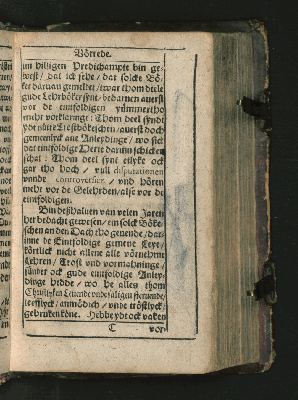 Vörrede.
im hilligen Predichampte bin ge-
west / dat ick sehe / dat solcke Bö-
ke darvan gemeldet / twar thom deele
gude Lehrböker synt / bedarven averst
vor de eintfoldigen rümmertho
mehr vorklaringe: Thom deel syndt
ydt nütte Liefböketschen / averst doch
gemeenlyck ane Anleydinge / wo sick
dat eintfoldige Herte darinn schicken
schal: Thom deel synt etlyke ock
gar tho hoch / vull disputationen
unnde controversien / und hören
mehr vor de Gelehrden / alse vor de
eintfoldigen.
Bin deßhalven van velen Jaren
her bedacht gewesen / ein solck Böke-
schen an den Dach tho gevende / dar-
inne de Eintfoldige gemene Leye /
körtlick nicht allene alle vörnehme
Lehren / Trost und vormahninge /
sünder ock gude eintfoldige Anley-
dinge hedde / wo he alles thom
Christlyken Levende unde saligen stervende /
leefflyck / anmödich / unde tröstlyck /
gebruken köne. Hebbe ydt ock vaken
C vor